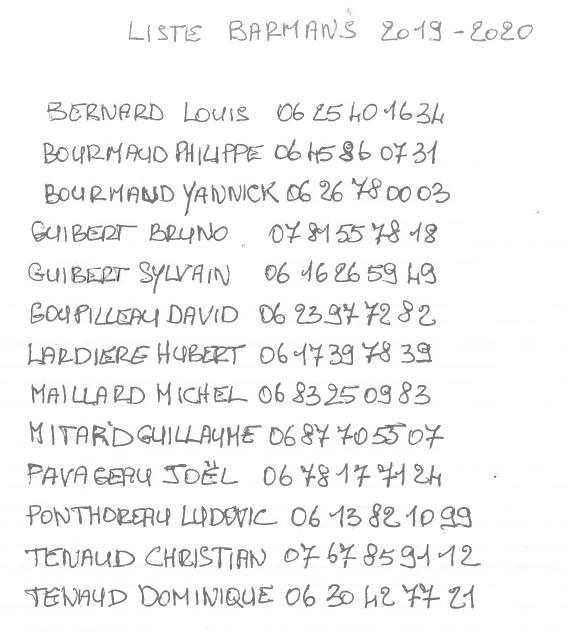 LISTE BARMANS 2019-2020
BERNARD LOUIS 06 25 40 16 34
BOURMAUD PHILIPPE 06 45 86 07 31
BOURMAUD YANNICK 06 26 78 00 03
GUIBERT BRUNO 07 81 55 78 18
GUIBERT SYLVAIN 06 16 26 59 49
GOUPILLEAU DAVID 06 23 97 72 82
LARDIERE HUBERT 06 17 39 78 39
MAILLARD MICHEL 06 83 25 09 83
MITARD GUILLAUME 06 87 70 55 07
PAVAGEAU JOËL 06 78 17 71 24
PONTHOREAU LUDOVIC 06 13 82 10 99
TENAUD CHRISTIAN 07 67 85 91 12
TENAUD DOMINIQUE 06 30 42 77 21